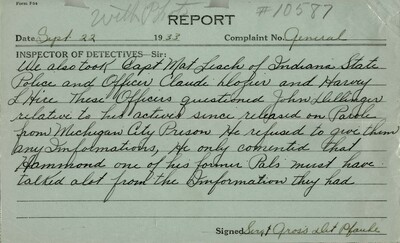 Form P-67
with Photo #10587
REPORT
Date Sept. 22 1933 Complaint No. General
INSPECTOR OF DETECTIVES—Sir:
We also took Capt Mat Leach of Indiana State
Police and Officer Claude and Harvey
Hire These Officers questioned John Dillinger
relative to his actives since released on Parole
from Michigan City Prison He refused to give them
any Informations, He only comented that
Hammond one of his former Pals must have
talked alot from the Information they had
Signed Sergt Gross Det Pfauhl